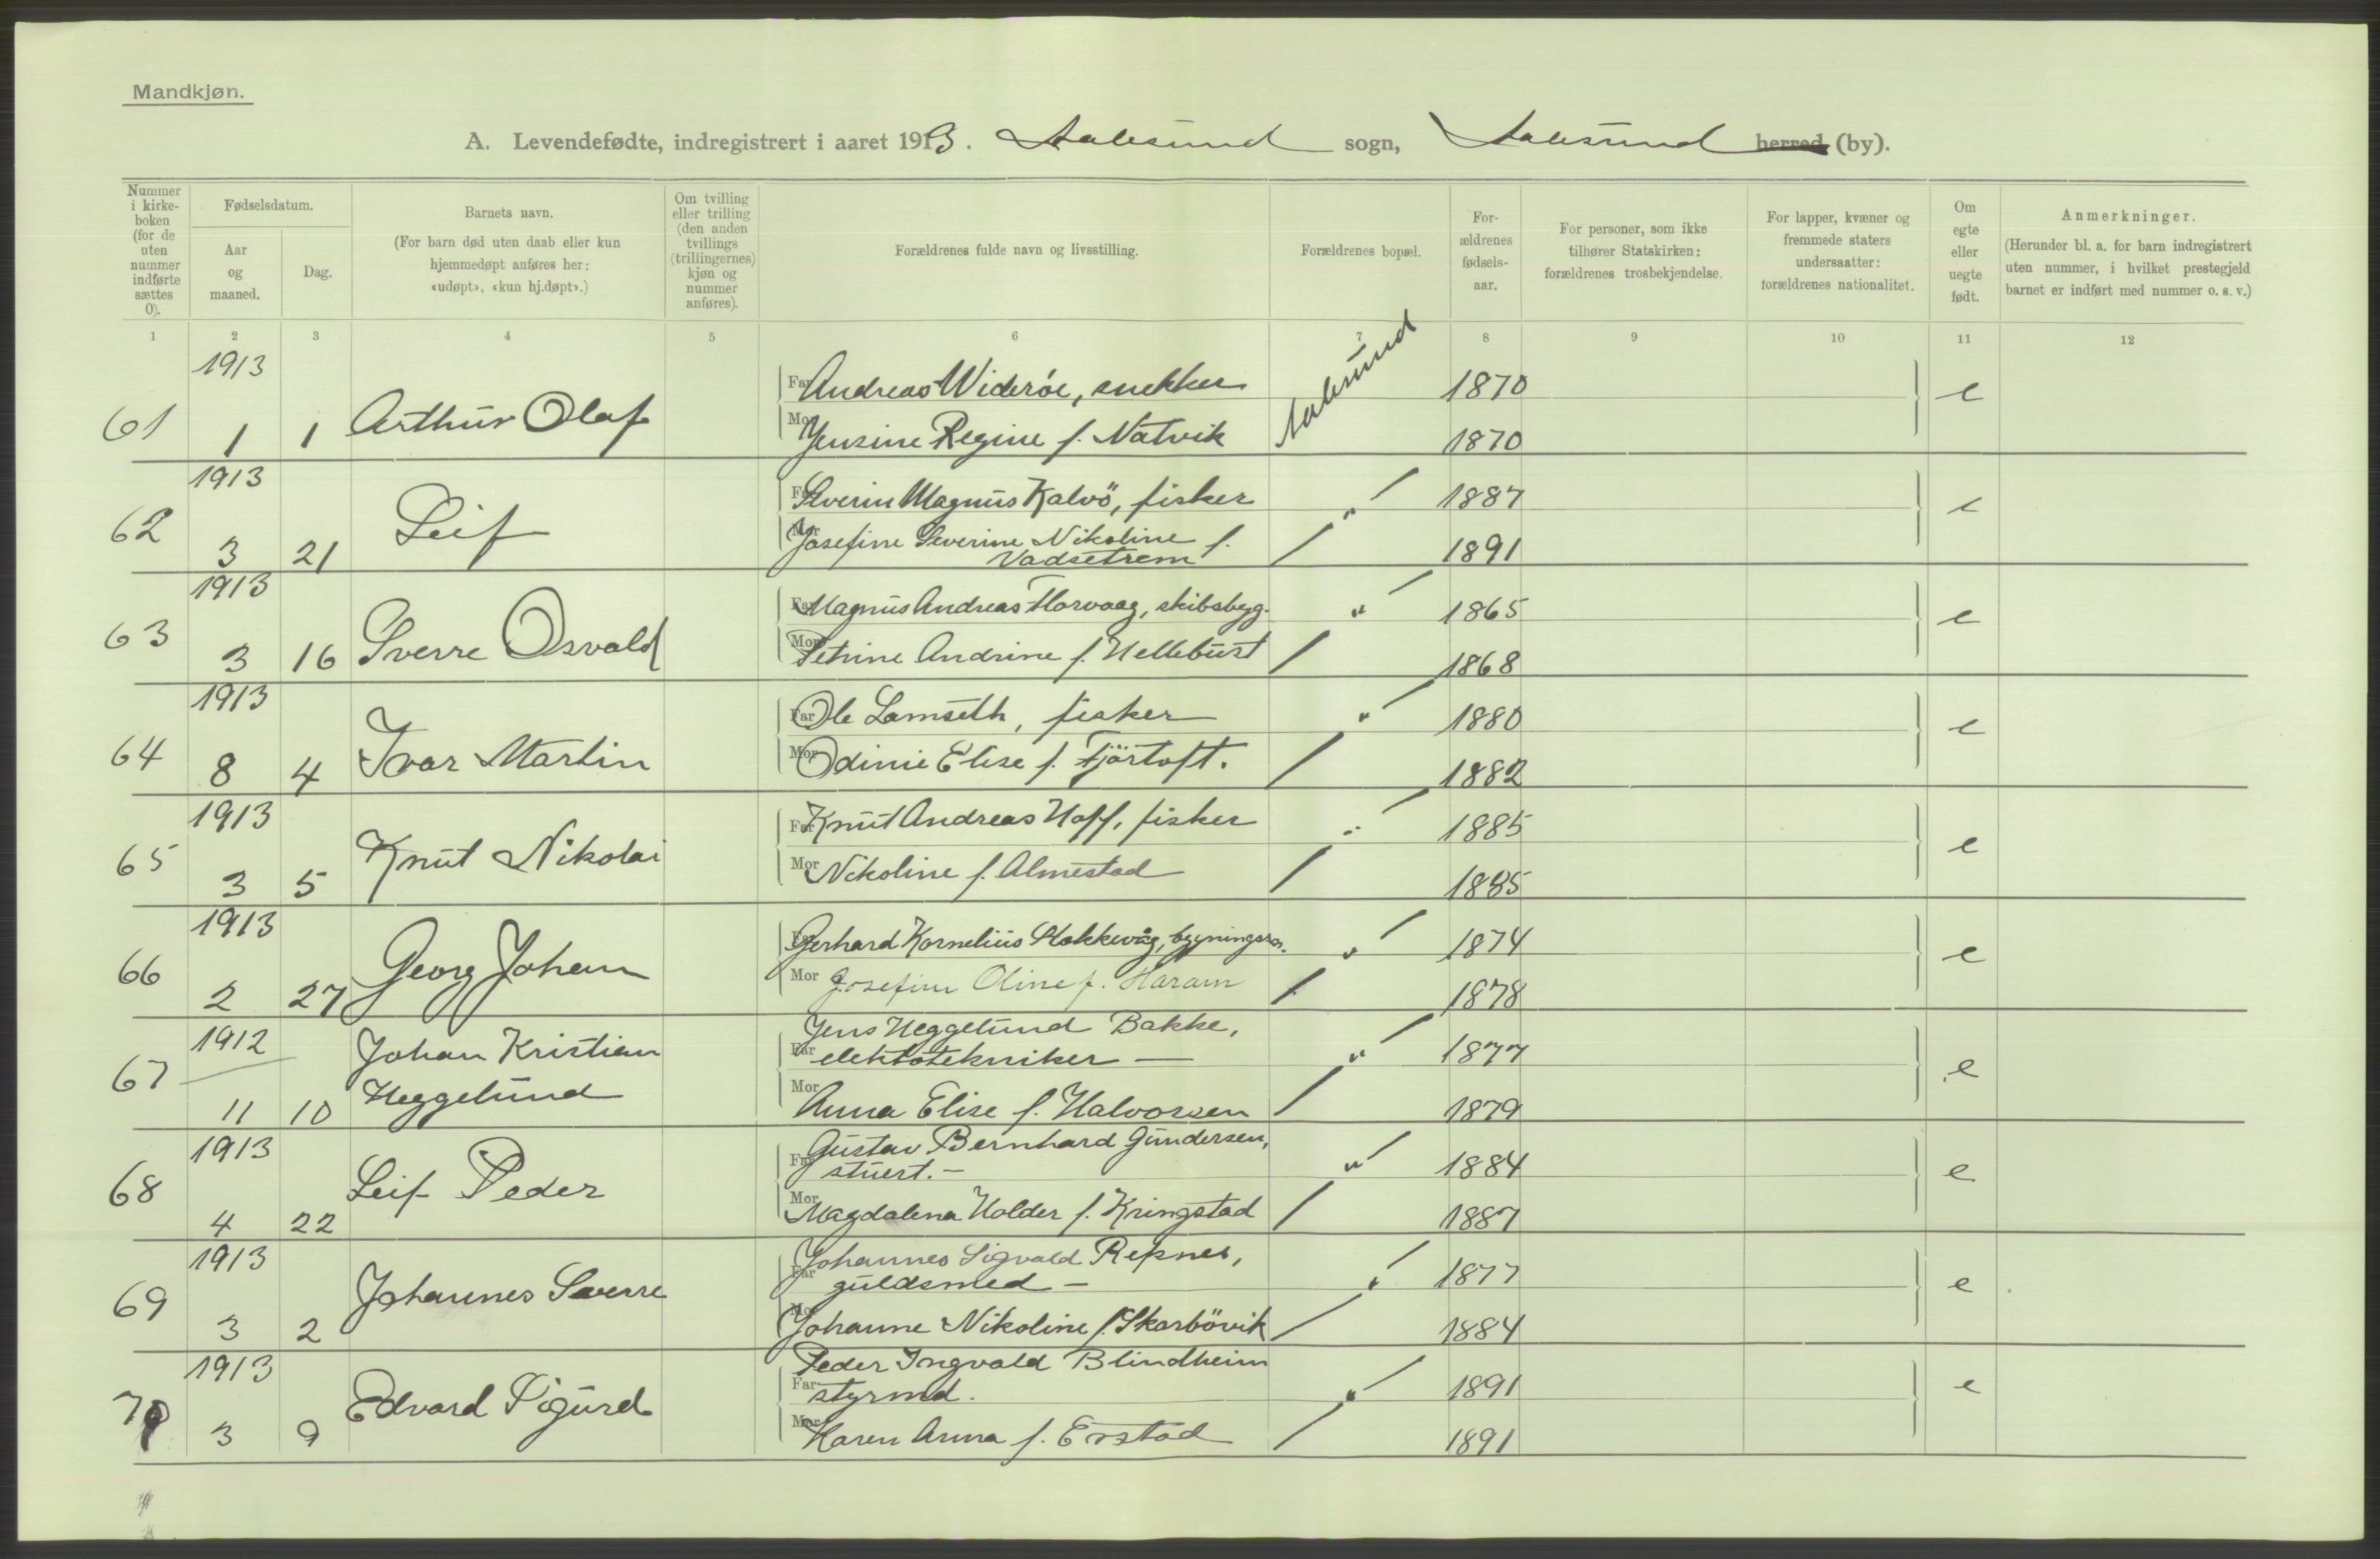 Mandkjøn.
A. Levendefødte, indregistrert i aaret 1913. Aalesund sogn, Aalesund herred (by).
Nummer i kirkeboken (for de uten nummer indførte sættes 0).
Fødselsdatum.
Aar og maaned.
Dag.
Barnets navn.
(For barn død uten daab eller kun hjemmedøpt anføres her: «udøpt», «kun hj.døpt».)
Om tvilling eller trilling (den anden tvillings (trillingernes) kjøn og nummer anføres).
Forældrenes fulde navn og livsstilling.
Forældrenes bopæl.
Forældrenes fødselsaar.
For personer, som ikke tilhører Statskirken: forældrenes trosbekjendelse.
For lapper, kvæner og fremmede staters undersaatter: forældrenes nationalitet.
Om egte eller uegte født.
Anmerkninger.
(Herunder bl. a. for barn indregistrert uten nummer, i hvilket prestegjeld barnet er indført med nummer o. s. v.)
1 2 3 4 5 6 7 8 9 10 11 12
1913
61 1 1 Arthur Olaf
Far Andreas Widerøe, snekker Aalesund 1870 e
Mor Jensine Regine f. Natvik 1870
1913
62 3 21 Leif
Far Severin Magnus Kalvö, fisker " 1887 e
Mor Josefine Severine Nikoline f. Vadsetrem 1891
1913
63 3 16 Sverre Osvald
Far Magnus Andreas Florvaag, skibsbygg. " 1865 e
Mor Petrine Andrine f. Hellebust 1868
1913
64 8 4 Ivar Martin
Far Ole Lamseth, fisker " 1880 e
Mor Odinie Elise f. Fjörtoft. 1882
1913
65 3 5 Knut Nikolai
Far Knut Andreas Hoff, fisker " 1885 e
Mor Nikoline f. Almestad 1885
1913
66 2 27 Georg Johan
Far Gerhard Kornelius Slokkevåg, bygningssn. " 1874 e
Mor Josefine Oline f. Haram 1878
1912
67 11 10 Johan Kristian Heggelund
Far Jens Heggelund Bakke, elektrotekniker — " 1877 e
Mor Anna Elise f. Halvorsen 1879
1913
68 4 22 Leif Peder
Far Gustav Bernhard Gundersen, stuert. — " 1884 e
Mor Magdalena Holder f. Kringstad 1887
1913
69 3 2 Johannes Sverre
Far Johannes Sigvald Refsnes, guldsmed — " 1877 e
Mor Johanne Nikoline f. Skorbövik 1884
1913
70 3 9 Edvard Sigurd
Far Peder Ingvald Blindheim styrmd. " 1891 e
Mor Karen Anna f. Erstad 1891